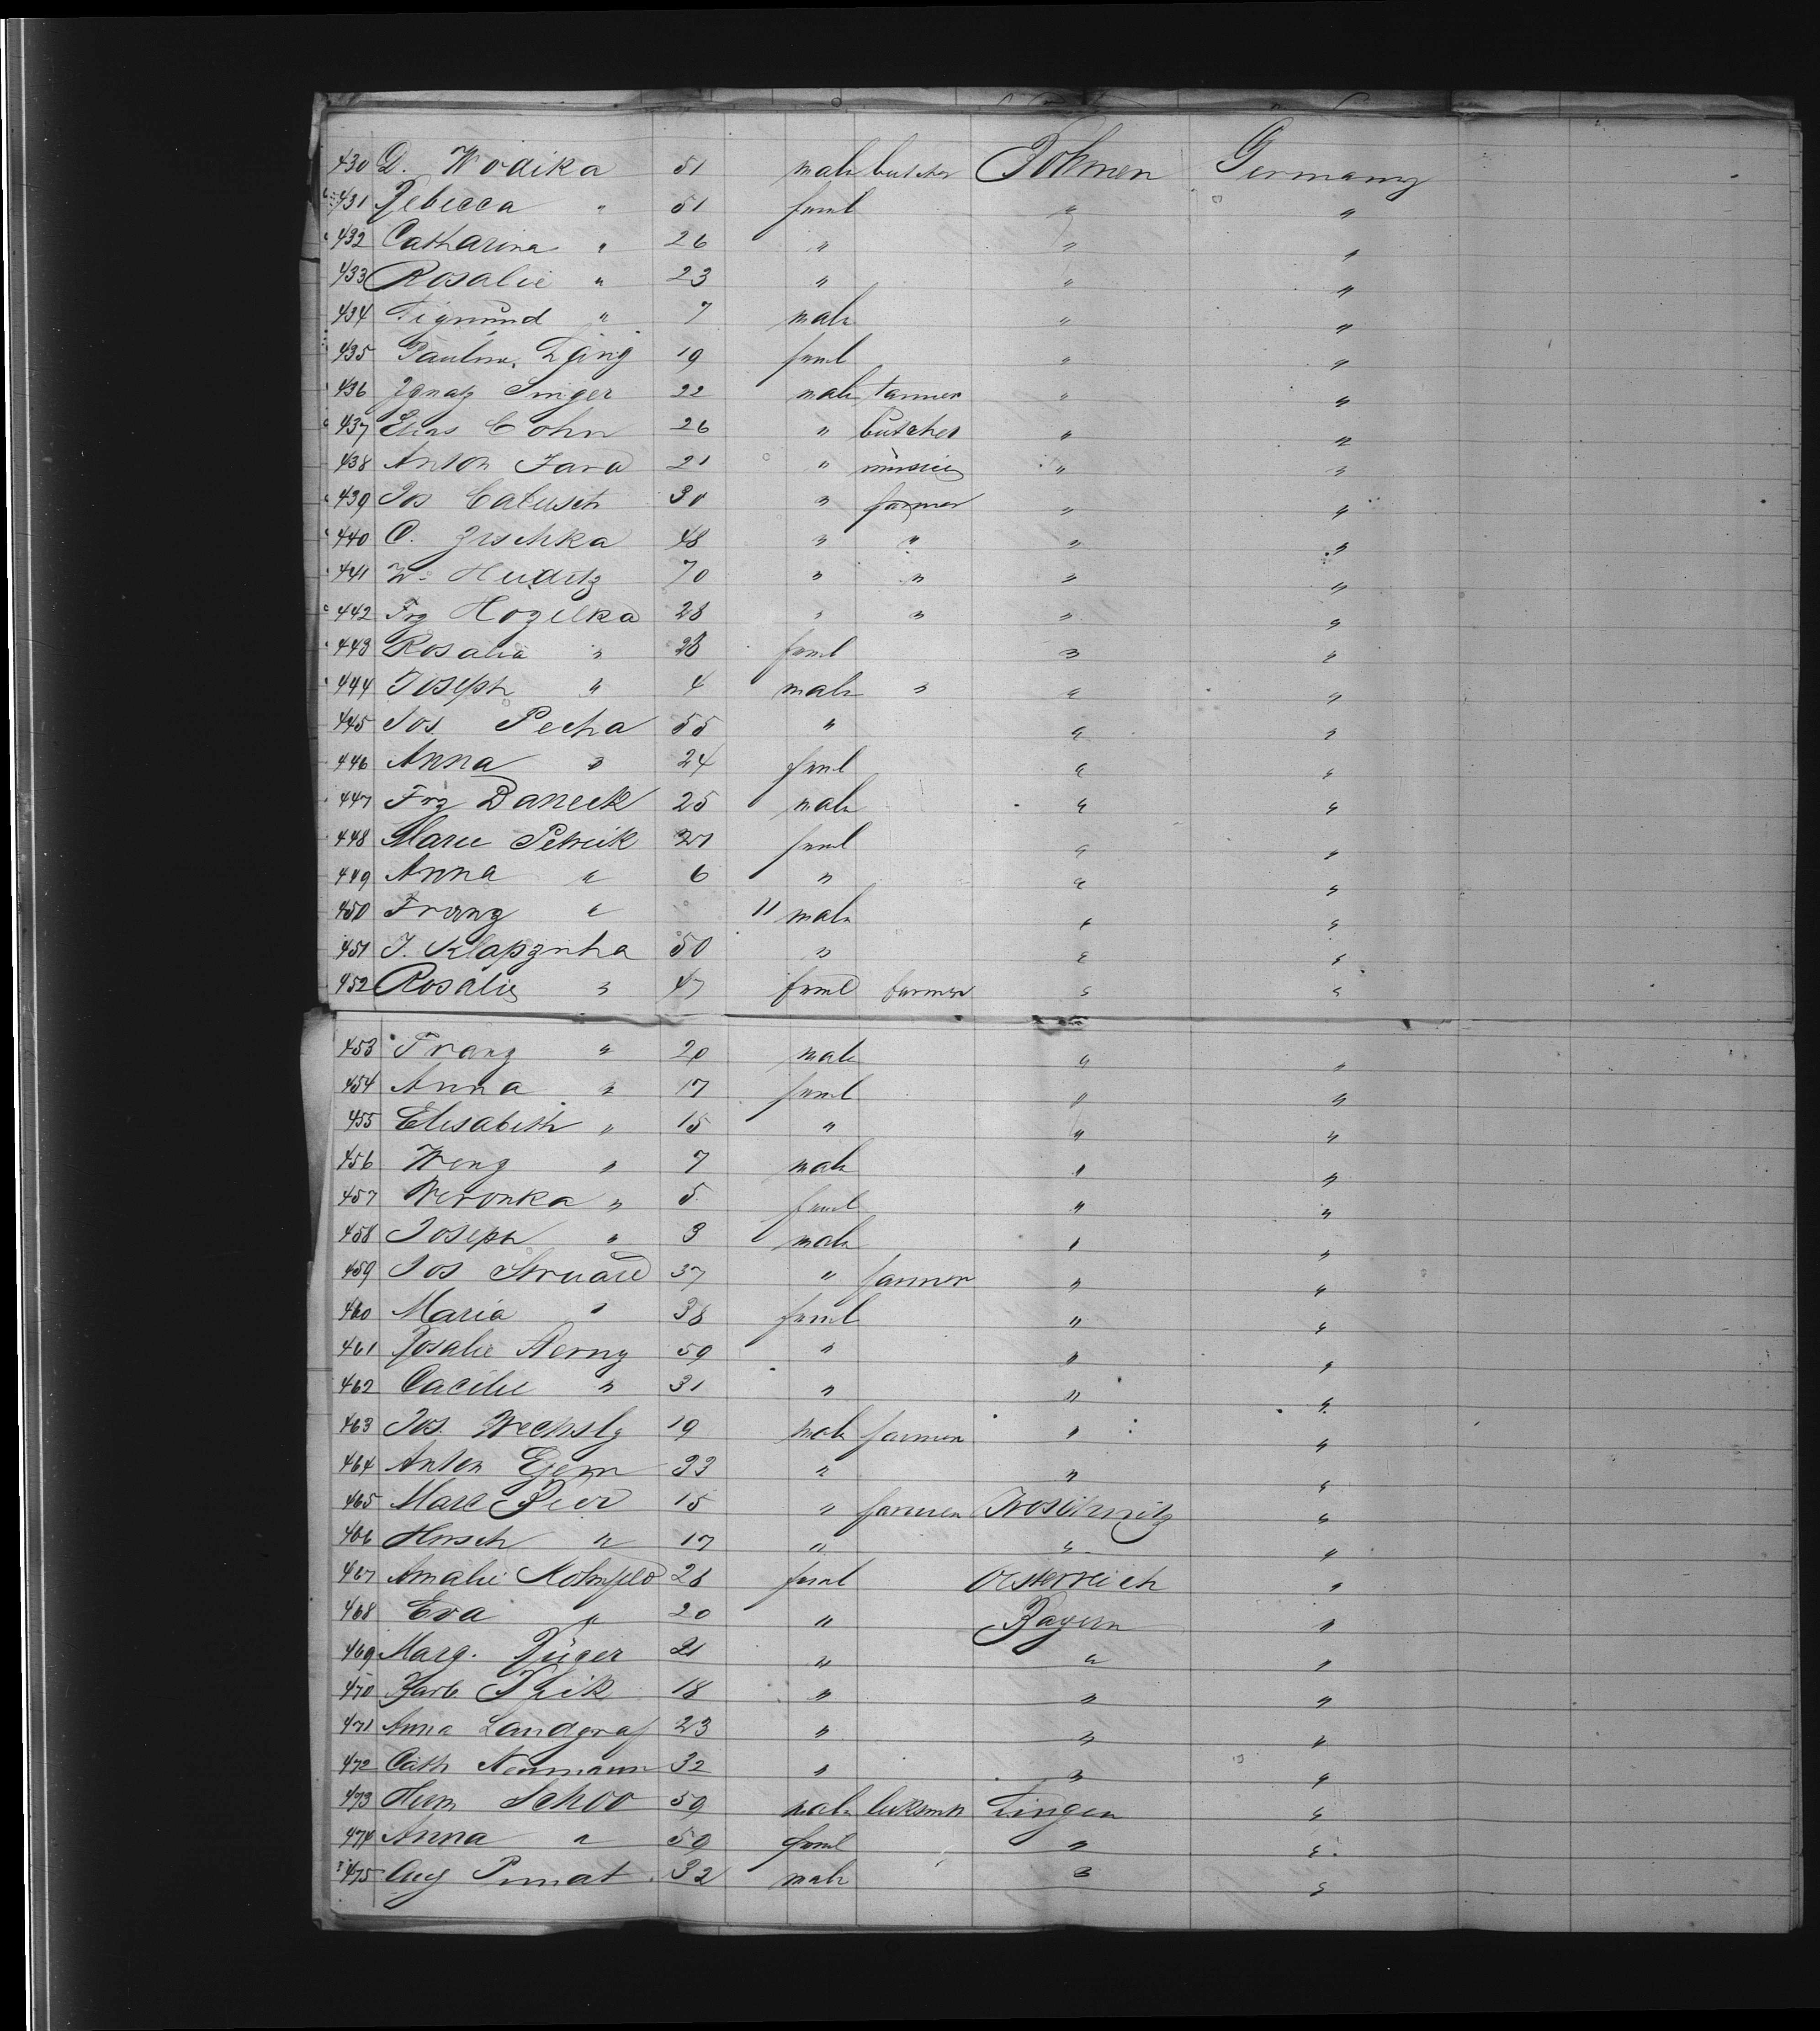 430 D. Wodika 51 male butcher Böhmen Germany
431 Rebecca " 51 feml " "
432 Catharina " 26 " " "
433 Rosalie " 23 " " "
434 Sigmund " 7 male " "
435 Pauline Lang 19 feml " "
436 Ignatz Singer 22 male tanner " "
437 Elias Cohn 26 " butcher " "
438 Anton Jara 21 " " "
439 Jos Calusch 30 " farmer " "
440 C. Zischka 48 " " " "
441 W. 70 " " " "
442 Frz Hozelka 28 " " " "
443 Rosalia " 28 feml " "
444 Joseph " 4 male " " "
445 Jos. Pecha 55 " " "
446 Anna " 24 feml " "
447 Frz Daneck 25 male " "
448 Marie Petrik 27 feml " "
449 Anna " 6 " " "
450 Franz " 11 male " "
451 J. Klapzuha 50 " " "
452 Rosalie " 47 feml farmer " "
453 Franz " 20 male " "
454 Anna " 17 feml " "
455 Elisabeth " 15 " " "
456 Wenz " 7 male " "
457 Weronka " 5 feml " "
458 Joseph " 3 male " "
459 Jos 37 " farmer " "
460 Maria " 38 feml " "
461 Rosalie 59 " " "
462 Cacilie " 31 " " "
463 Jos. Wechslg 19 male farmer " "
464 Anton 33 " " "
465 Marc Beer 15 " farmer "
466 Hirsch " 17 " " "
467 Amalie 28 feml Oesterreich "
468 Eva " 20 " Bayern "
469 Marg. Rüger 21 " " "
470 Barb 18 " " "
471 Anna Landgraf 23 " " "
472 Cath Neumann 32 " " "
473 Herm Schoo 59 male Lingen "
474 Anna " 50 feml " "
475 Aug 32 male " "